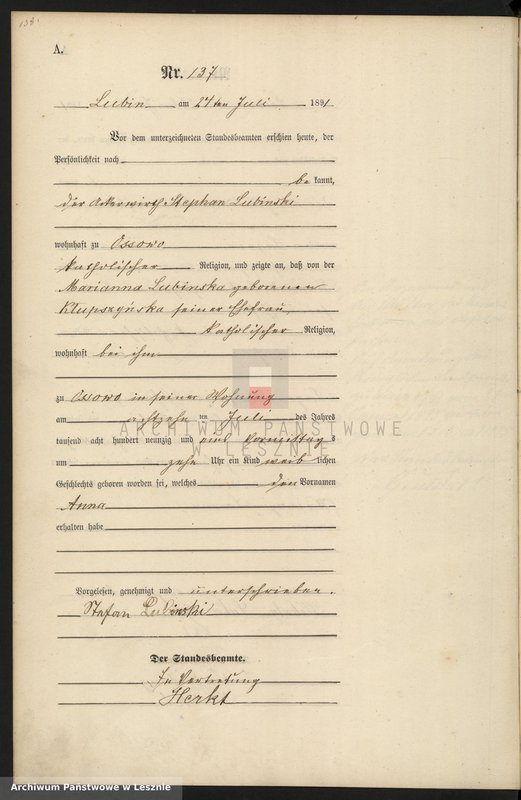 138.
A.
Nr. 137
Lubin am 24ten Juli 1891
Vor dem unterzeichneten Standesbeamten erschien heute, der
Persönlichkeit nach
be kannt,
der Ackerwirth Stephan Lubinski
wohnhaft zu Ossowo
katholischer Religion, und zeigte an, daß von der
Marianna Lubinska geborenen
Klupszyńska seiner Ehefrau
katholischer Religion,
wohnhaft bei ihm
zu Ossowo in seiner Wohnung
am achtzehn ten Juli des Jahres
tausend acht hundert neunzig und eins Vormittag s
um zehn Uhr ein Kind weib lichen
Geschlechts geboren worden sei, welches den Vornamen
Anna
erhalten habe
Vorgelesen, genehmigt und unterschrieben.
Stefan Lubinski
Der Standesbeamte.
In Vertretung
Herkt
ARCHIWUM PAŃSTWOWE
W LESZNIE
Archiwum Państwowe w Lesznie